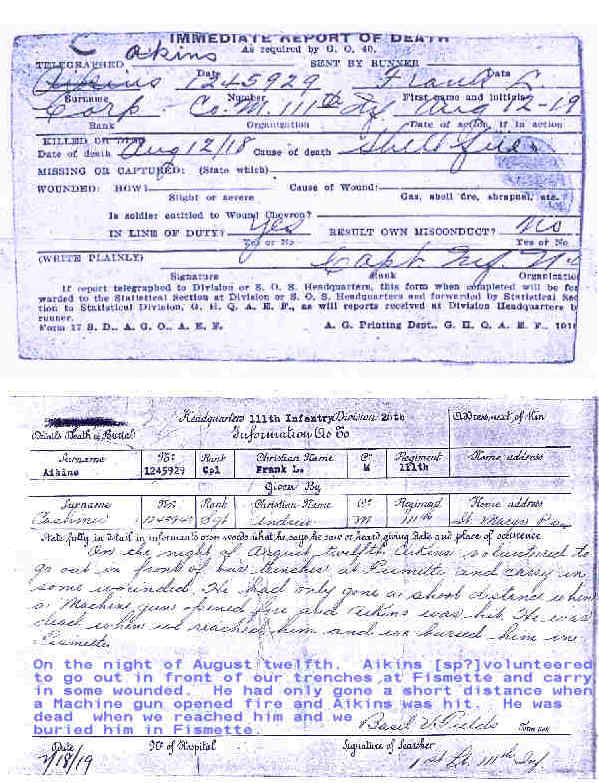 IMMEDIATE REPORT OF DEATH
C akins
As required by G. O. 40.
TELEGRAPHED SENT BY RUNNER
Date Data
Aikins 1245929 Frank L.
Surname Number First name and initials
Corp. Co. M. 111th Inf Aug 12-19
Rank Organization Date of action, if in action
KILLED OR DIED
Date of death Aug 12/18 Cause of death Shell fire
MISSING OR CAPTURED: (State which)
WOUNDED: HOW? Cause of Wound:
Slight or severe Gas, shell fire, shrapnel, etc.
Is soldier entitled to Wound Chevron?
IN LINE OF DUTY? Yes RESULT OWN MISCONDUCT? No
Yes or No Yes or No
(WRITE PLAINLY) Capt. Inf.
Signature Rank Organizatio
If report telegraphed to Division or S. O. S. Headquarters, this form when completed will be for
warded to the Statistical Section at Division or S. O. S. Headquarters and forwarded by Statistical Sec
tion to Statistical Division, G. H. Q. A. E. F., as will reports received at Division Headquarters b
runner.
Form 17 S. D., A. G. O., A. E. F. A. G. Printing Dept., G. H. Q. A. E. F., 191
Headquarters 111th Infantry Division 28th Address, next of Kin
Details Death & Burial Information As To
Surname No: Rank Christian Name Co Regiment Home address
Aikins 1245929 Cpl Frank L. M 111th
Given By
Surname No: Rank Christian Name Co Regiment Home address
Sgt Andrew M 111th St. Marys Pa
State fully in detail in informants own words what he says he saw or heard giving Date and place of occurence
On the night of August twelfth Aikins volunteered to
go out in front of our trenches at Fismette and carry in
some wounded. He had only gone a short distance when
a Machine gun opened fire and Aikins was hit. He was
dead when we reached him and we buried him in
Fismette.
On the night of August twelfth. Aikins [sp?]volunteered
to go out in front of our trenches at Fismette and carry
in some wounded. He had only gone a short distance when
a Machine gun opened fire and Aikins was hit. He was
dead when we reached him and we
buried him in Fismette.
Basil V. Fields
Date No of Hospital Signature of Searcher
2/18/19 1st Lt. 111th Inf.